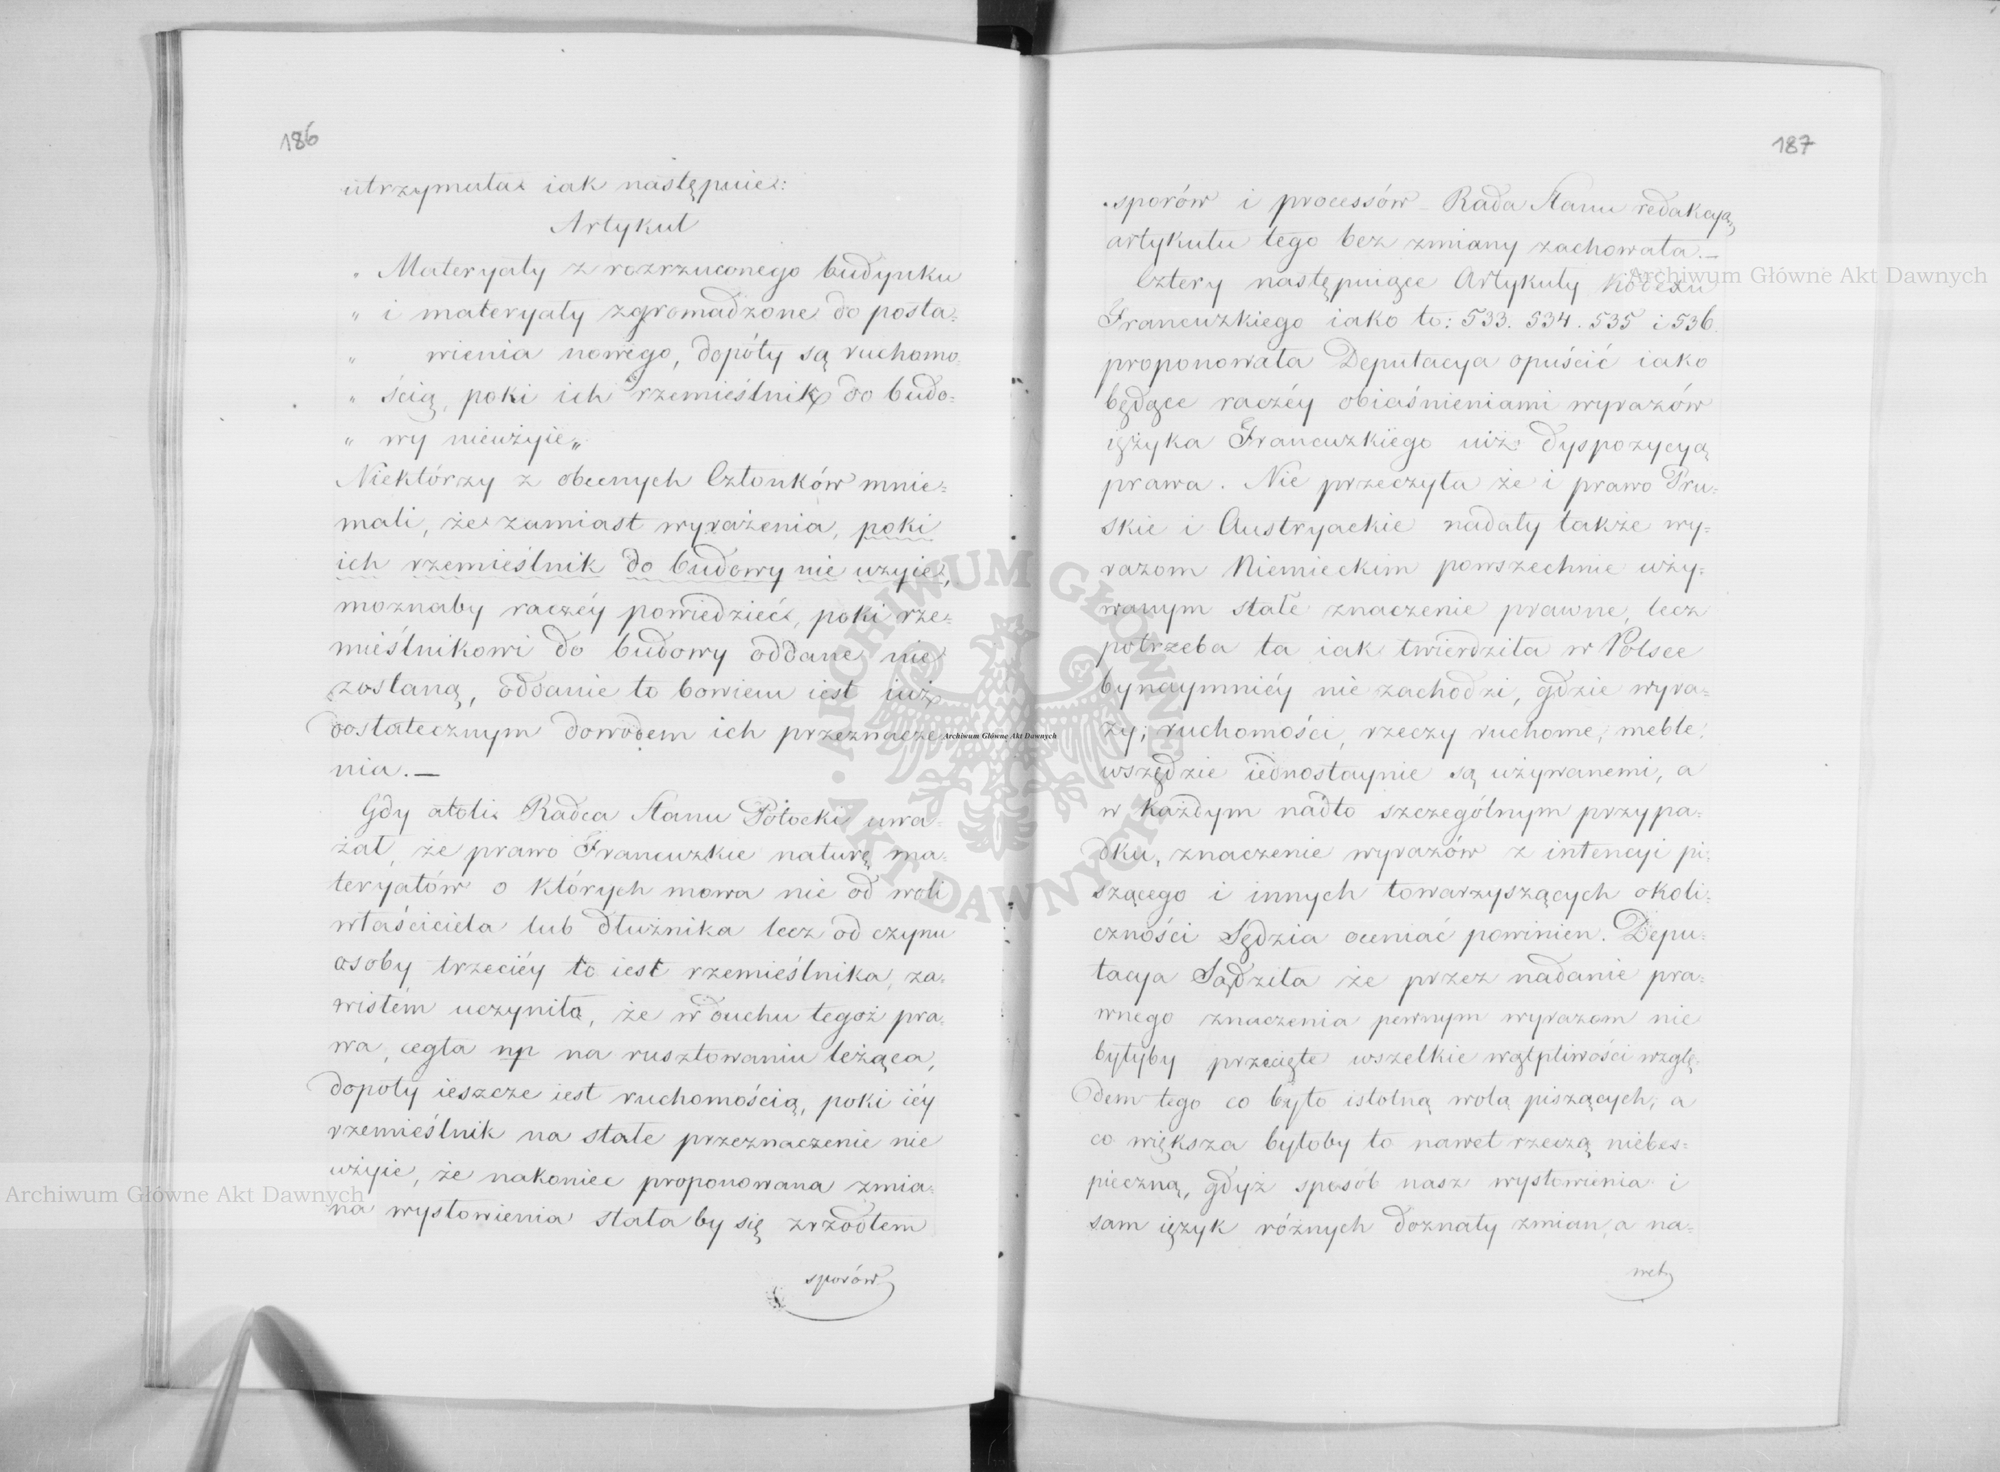 186
utrzymała iak następuie:
Artykuł
„ Materyały z rozrzuconego budynku
„ i materyały zgromadzone do posta-
„ wienia nowego, dopóty są ruchomo
„ ścią, poki ich rzemieślnik do budo-
„ wy nieużyie„
Niektórzy z obecnych Członków mnie-
mali, że zamiast wyrażenia, poki
ich rzemieślnik do budowy nie użyie,
moznaby raczéy powiedzieć, poki rze-
mieślnikowi do budowy oddane nie
zostaną, oddanie to bowiem iest iuż
dostatecznym dowodem ich przeznacze
nia.—
Gdy atoli Radca Stanu Potocki uwa-
żał, że prawo Francuzkie naturę ma-
teryałów o których mowa nie od woli
właściciela lub dłużnika lecz od czynu
osoby trzeciéy to iest rzemieślnika, za-
wisłém uczyniło, że w duchu tegoż pra-
wa, cegła np na rusztowaniu leżąca,
dopoty ieszcze iest ruchomością, poki iéy
rzemieślnik na stałe przeznaczenie nie
użyie, że nakoniec proponowana zmia-
na wysłowienia stała by się zrzodłem
sporów
187
sporów i processów – Rada Stanu redakcyą
artykułu tego bez zmiany zachowała.—
Cztery następuiące Artykuły Kodexu
Francuzkiego iako to: 533. 534. 535 i 536.
proponowała Deputacya opuścić iako
będące raczéy obiaśnieniami wyrazów
ięzyka Francuzkiego niż dyspozycyą
prawa. Nie przeczyła że i prawo Pru-
skie i Austryackie nadały także wy-
razom Niemieckim powszechnie uży-
wanym stałe znaczenie prawne, lecz
potrzeba ta iak twierdziła w Polsce
bynaymniéy nie zachodzi, gdzie wyra-
zy; ruchomości, rzeczy ruchome, meble,
wszędzie iednostaynie są używanemi, a
w każdym nadto szczególnym przypa-
dku, znaczenie wyrazów z intencyi pi-
szącego i innych towarzyszących okoli-
czności Sędzia oceniać powinien. Depu-
tacya Sądziła że przez nadanie pra-
wnego znaczenia pewnym wyrazom nie
byłyby przecięte wszelkie wątpliwości wzglę-
dem tego co było istotną wolą piszących, a
co większa byłoby to nawet rzeczą niebes-
pieczną, gdyż sposób nasz wysłowienia i
sam ięzyk różnych doznały zmian, a na-
wet
Archiwum Główne Akt Dawnych
Archiwum Główne Akt Dawnych
Archiwum Główne Akt Dawnych
ARCHIWUM GŁÓWNE AKT DAWNYCH